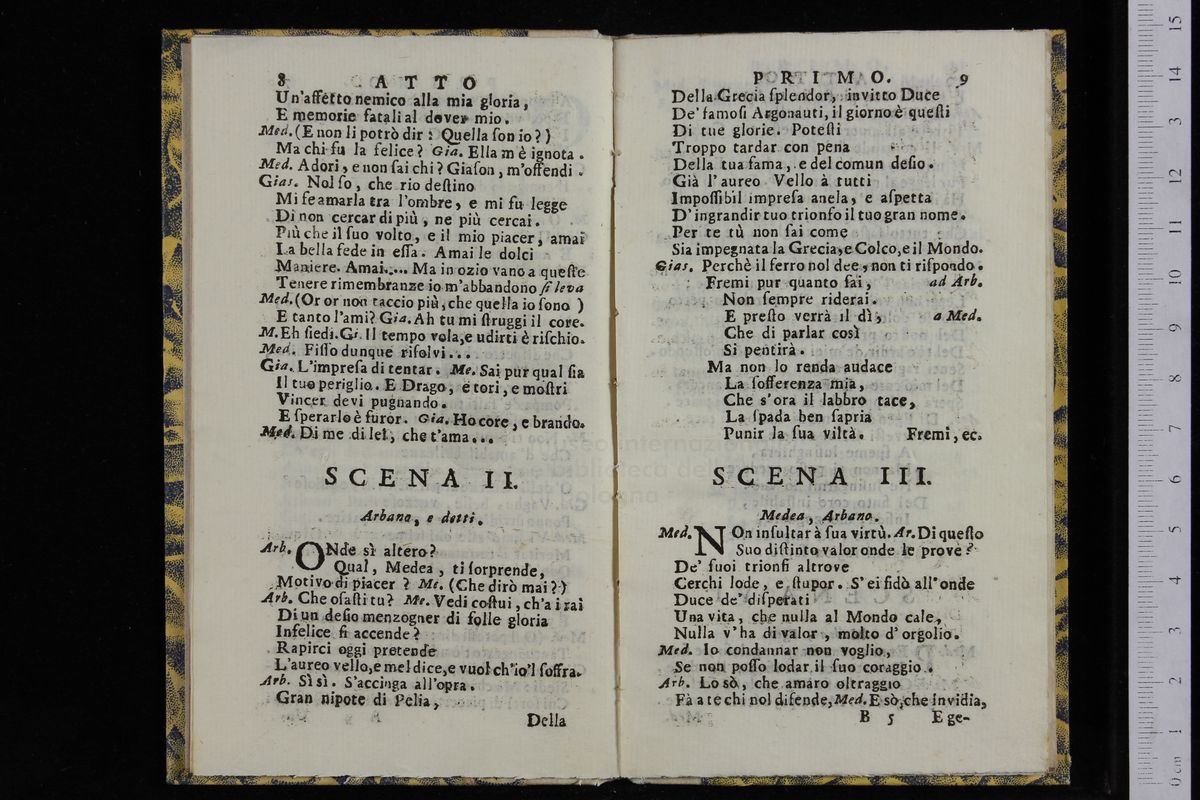 8 ATTO
Un'affetto nemico alla mia gloria,
E memorie fatali al dover mio.
Med. (E non li potrò dir : Quella ſon io?)
Ma chi fu la felice? Gia. Ella m è ignota.
Med. Adori, e non ſai chi? Giaſon, m'offendi.
Gias. Nol ſo, che rio deſtino
Mi fe amarla tra l'ombre, e mi fu legge
Di non cercar di più, ne più cercai.
Più che il ſuo volto, e il mio piacer, amai
La bella fede in eſſa. Amai le dolci
Maniere. Amai..... Ma in ozio vano a queſte
Tenere rimembranze io m'abbandono ſi leva
Med. (Or or non taccio più, che quella io ſono )
E tanto l'ami? Gia. Ah tu mi ſtruggi il core.
M. Eh ſiedi. Gi. Il tempo vola, e udirti è riſchio.
Med. Fiſſo dunque riſolvi...
Gia. L'impreſa di tentar. Me. Sai pur qual ſia
Il tuo periglio. E Drago, e tori, e moſtri
Vincer devi pugnando.
E ſperarlo è furor. Gia. Ho core, e brando.
Med. Di me di lei, che t'ama...
SCENA II.
Arbano, e detti.
Arb. ONde sì altero?
Qual, Medea, ti ſorprende,
Motivo di piacer? Me. (Che dirò mai?)
Arb. Che oſaſti tu? Me. Vedi coſtui, ch'a i rai
Di un deſio menzogner di folle gloria
Infelice ſi accende?
Rapirci oggi pretende
L'aureo vello, e mel dice, e vuol ch'io'l ſoffra.
Arb. Sì sì. S'accinga all'opra.
Gran nipote di Pelia,
Della
PORTIMAO. 9
Della Grecia ſplendor, invitto Duce
De' famoſi Argonauti, il giorno è queſti
Di tue glorie. Poteſti
Troppo tardar con pena
Della tua fama, e del comun deſio.
Già l'aureo Vello à tutti
Impoſſibil impreſa anela, e aſpetta
D'ingrandir tuo trionfo il tuo gran nome.
Per te tù non ſai come
Sia impegnata la Grecia, e Colco, e il Mondo.
Gias. Perchè il ferro nol dee, non ti riſpondo.
Fremi pur quanto ſai, ad Arb.
Non ſempre riderai.
E preſto verrà il dì, a Med.
Che di parlar così
Si pentirà.
Ma non lo renda audace
La ſofferenza mia,
Che s'ora il labbro tace,
La ſpada ben ſapria
Punir la ſua viltà. Fremi, ec.
SCENA III.
Medea, Arbano.
Med. NOn inſultar à ſua virtù. Ar. Di queſto
Suo diſtinto valor onde le prove?
De' ſuoi trionfi altrove
Cerchi lode, e ſtupor. S'ei fidò all'onde
Duce de' diſperati
Una vita, che nulla al Mondo cale,
Nulla v'ha di valor, molto d'orgolio.
Med. Io condannar non voglio,
Se non poſſo lodar il ſuo coraggio.
Arb. Lo sò, che amaro oltraggio
Fà a te chi nol difende, Med. E sò, che invidia,
B 5 E ge-